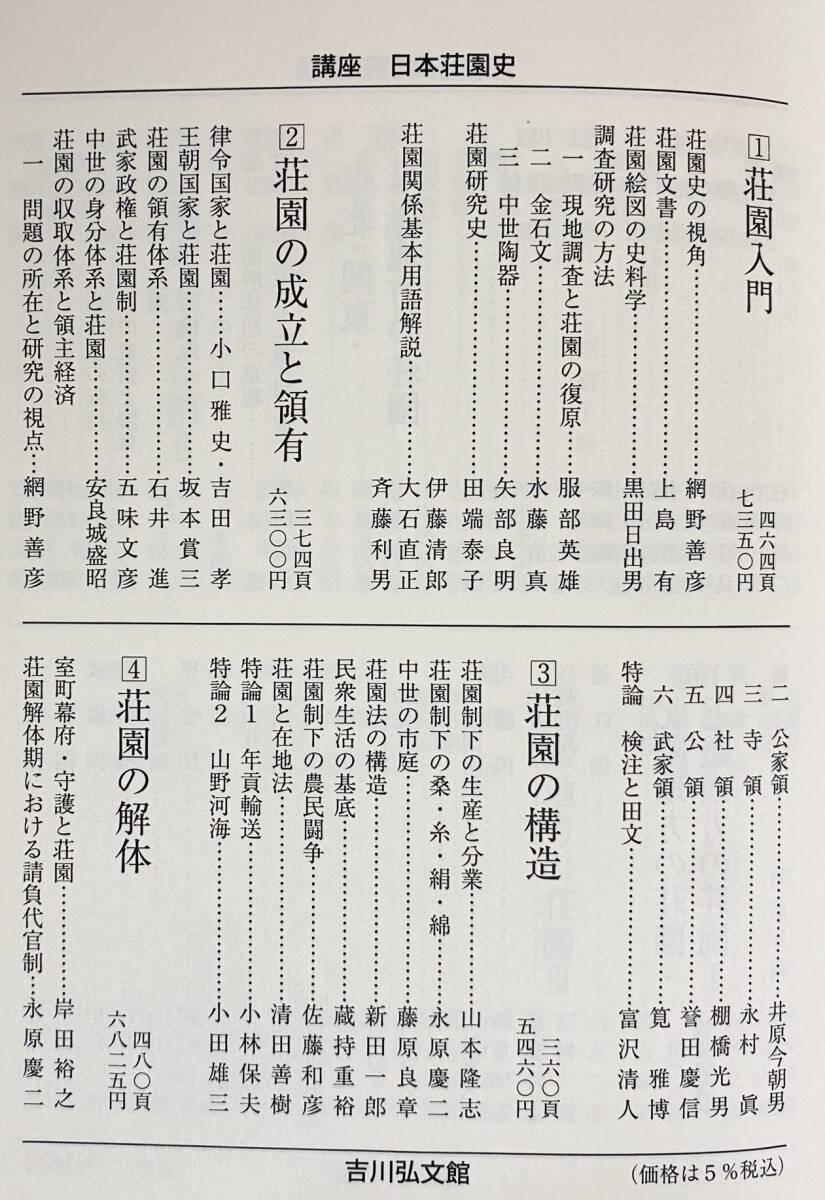 講座　日本荘園史
1 荘園入門
四六四頁
七三五〇円
荘園史の視角…………………網野善彦
荘園文書…………………上島　有
荘園絵図の史料学…………………黒田日出男
調査研究の方法
一　現地調査と荘園の復原……服部英雄
二　金石文…………………水藤　真
三　中世陶器…………………矢部良明
荘園研究史…………………田端泰子
伊藤清郎
荘園関係基本用語解説…………大石直正
斉藤利男
2 荘園の成立と領有
三七四頁
六三〇〇円
律令国家と荘園……小口雅史・吉田　孝
王朝国家と荘園…………………坂本賞三
荘園の領有体系…………………石井　進
武家政権と荘園制…………………五味文彦
中世の身分体系と荘園…………安良城盛昭
荘園の収取体系と領主経済
一　問題の所在と研究の視点…網野善彦
二　公家領…………………井原今朝男
三　寺　領…………………永村　眞
四　社　領…………………棚橋光男
五　公　領…………………誉田慶信
六　武家領…………………筧　雅博
特論　検注と田文…………………富沢清人
3 荘園の構造
三六〇頁
五四六〇円
荘園制下の生産と分業…………山本隆志
荘園制下の桑・糸・絹・綿……永原慶二
中世の市庭…………………藤原良章
荘園法の構造…………………新田一郎
民衆生活の基底…………………蔵持重裕
荘園制下の農民闘争…………佐藤和彦
荘園と在地法…………………清田善樹
特論1　年貢輸送…………………小林保夫
特論2　山野河海…………………小田雄三
4 荘園の解体
四八〇頁
六八二五円
室町幕府・守護と荘園…………岸田裕之
荘園解体期における請負代官制…永原慶二
吉川弘文館
（価格は5％税込）